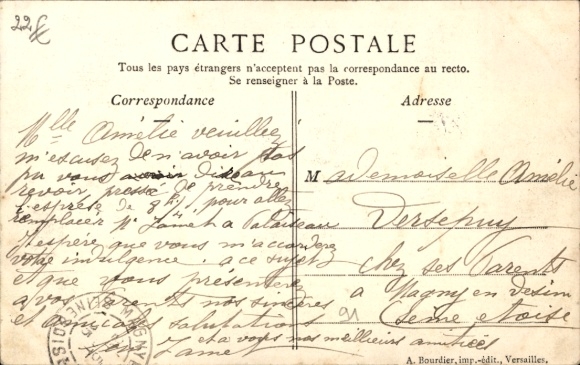 22 €
CARTE POSTALE
Tous les pays étrangers n'acceptent pas la correspondance au recto.
Se renseigner à la Poste.
Correspondance
Mlle Amélie veuillez
m'escusez de n'avoir pas
pu vous
revoir, pressé de prendre
l'esprete de 8h, pour allez
remplacer Mr Lamet a Palaiseau
J'espére que vous m'accorderez
votre indulgence a ce sujet
et que vous présenterez
a vos parents nos sincères
et amicales salutations
et a vous nos meilleurs amitiées
Adresse
Mademoiselle Amélie
Versepuy
chez ses Parents
a Magny en Vexin
Seine et Oise
91
A. Bourdier, imp.-édit., Versailles.